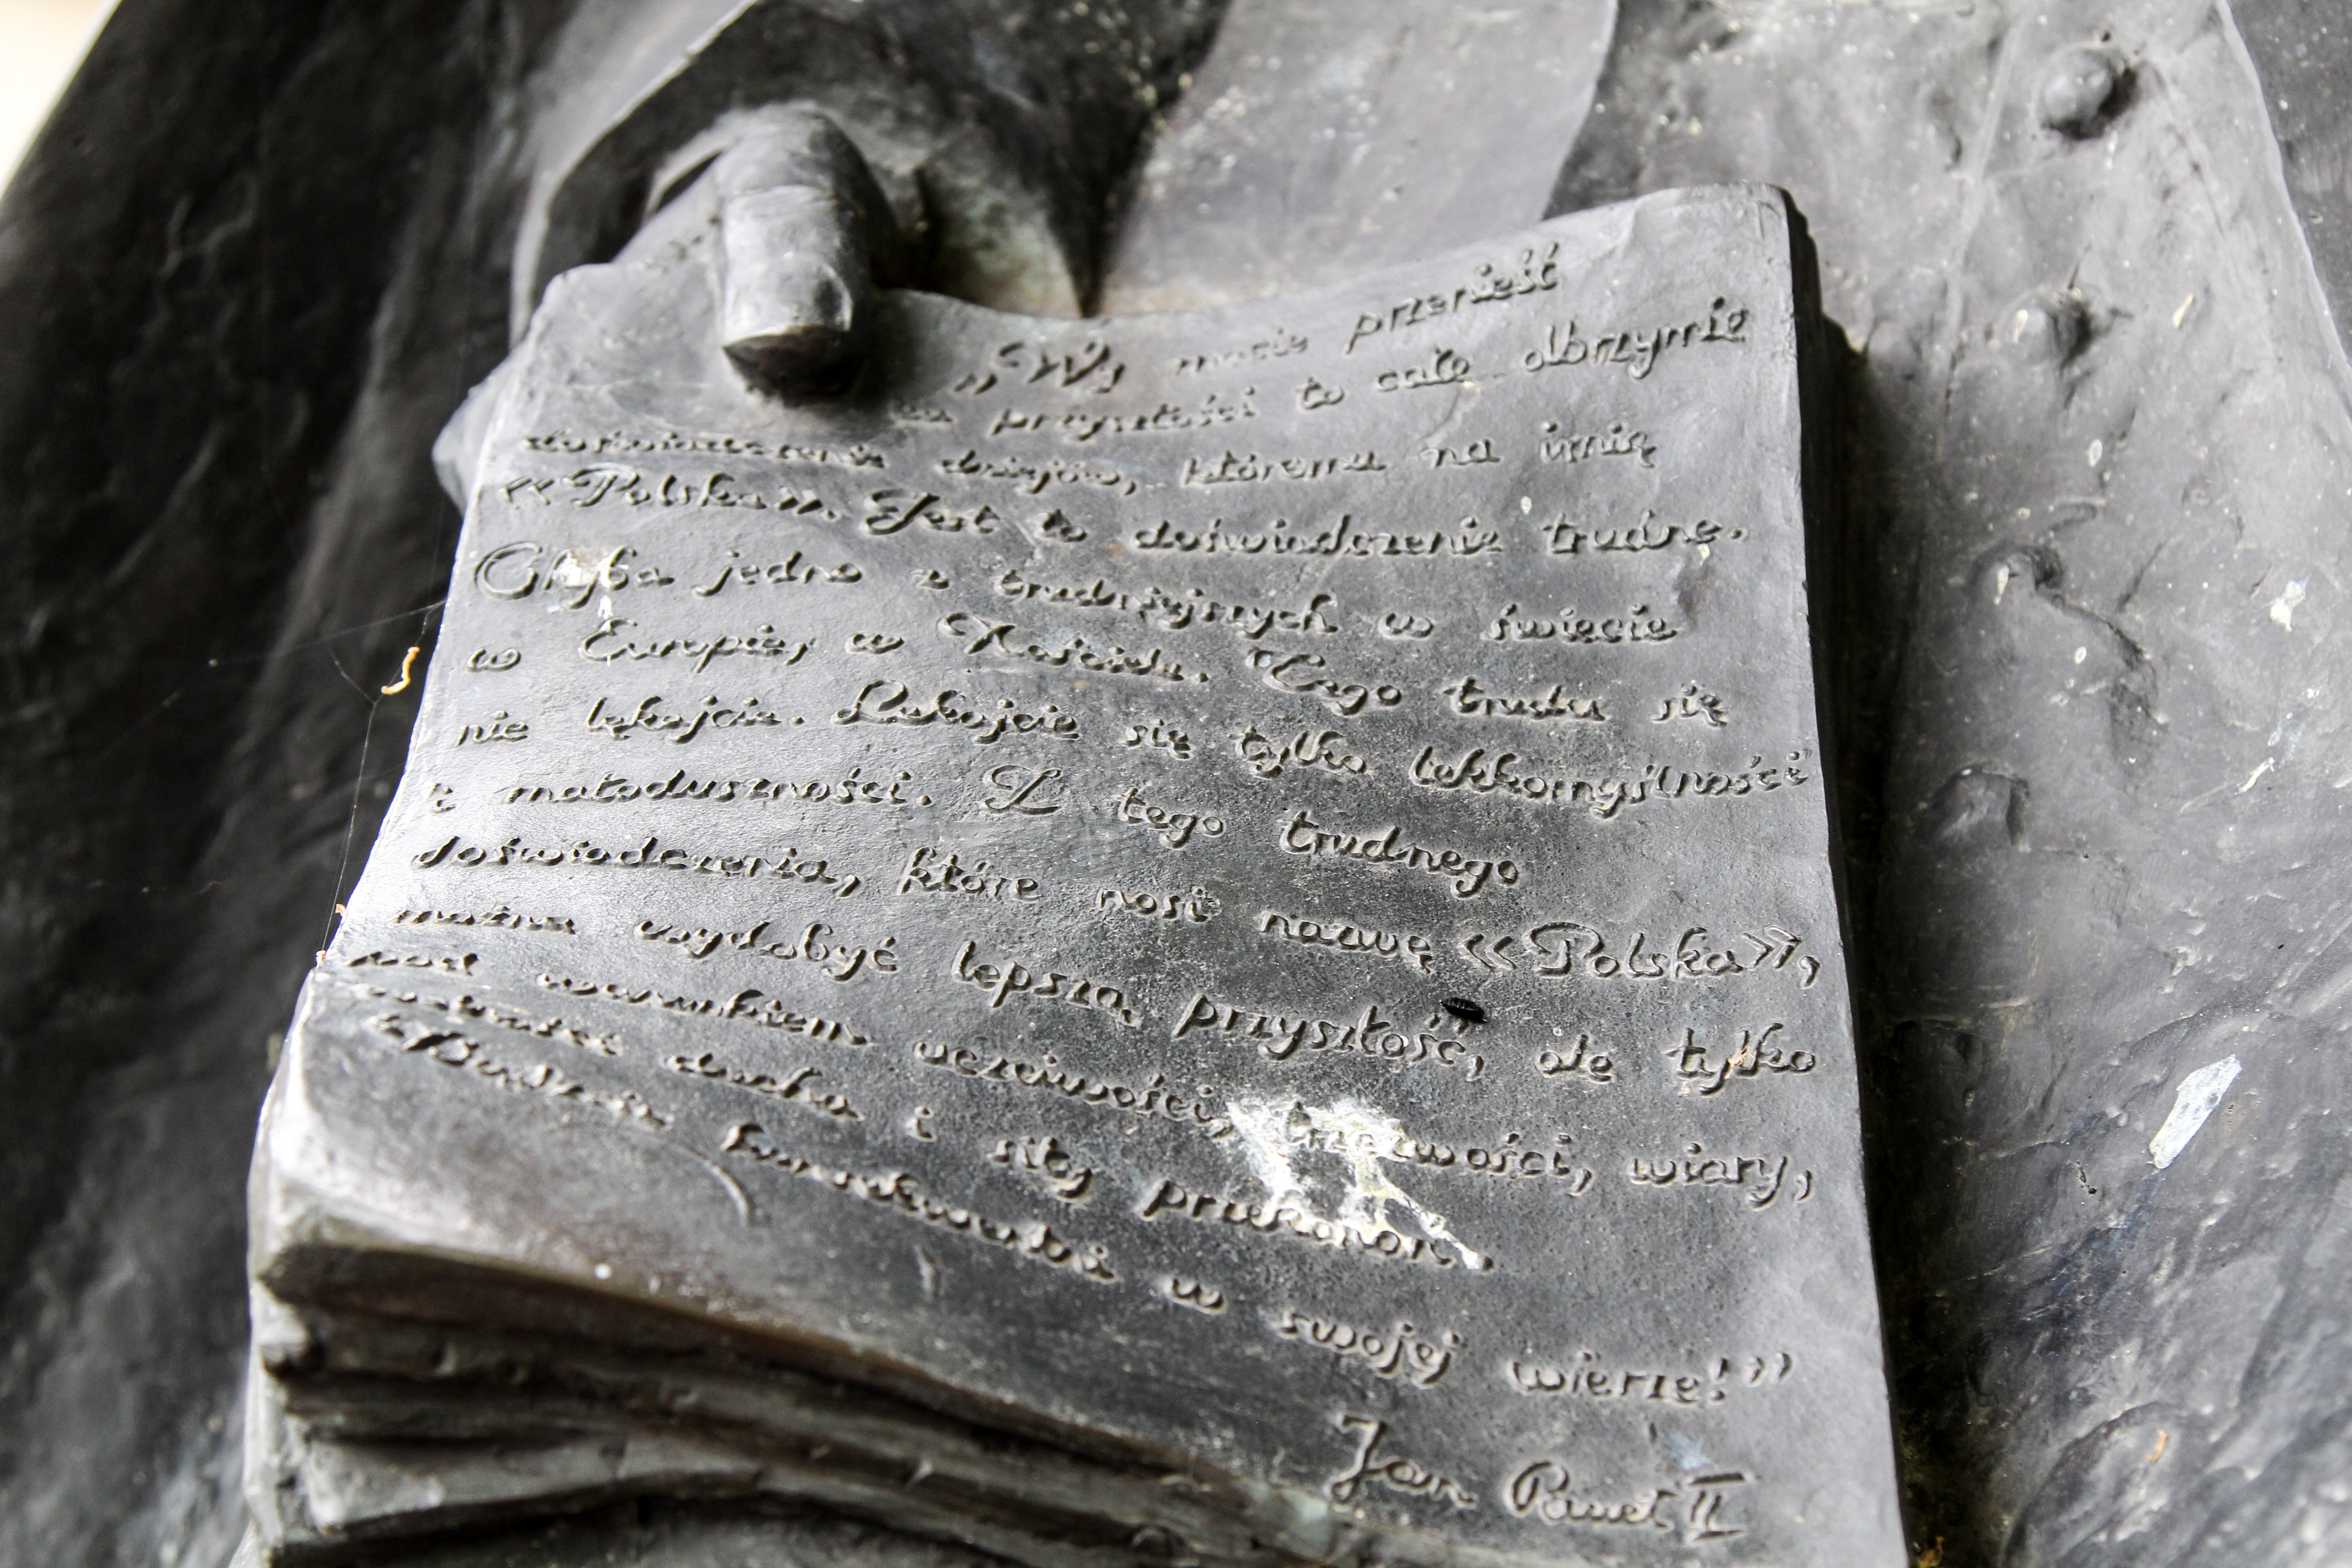 „Wy macie przenieść
ku przyszłości to całe olbrzymie
doświadczenie dziejów, któremu na imię
«Polska». Jest to doświadczenie trudne.
Chyba jedno z trudniejszych w świecie
w Europie, w Kościele. Tego trudu się
nie lękajcie. Lękajcie się tylko lekkomyślności
i małoduszności. Z tego trudnego
doświadczenia, które nosi nazwę «Polska»,
można wydobyć lepszą przyszłość, ale tylko
pod warunkiem uczciwości, trzeźwości, wiary,
wolności ducha i siły przekonań.
w swojej wierze!”
Jan Paweł II